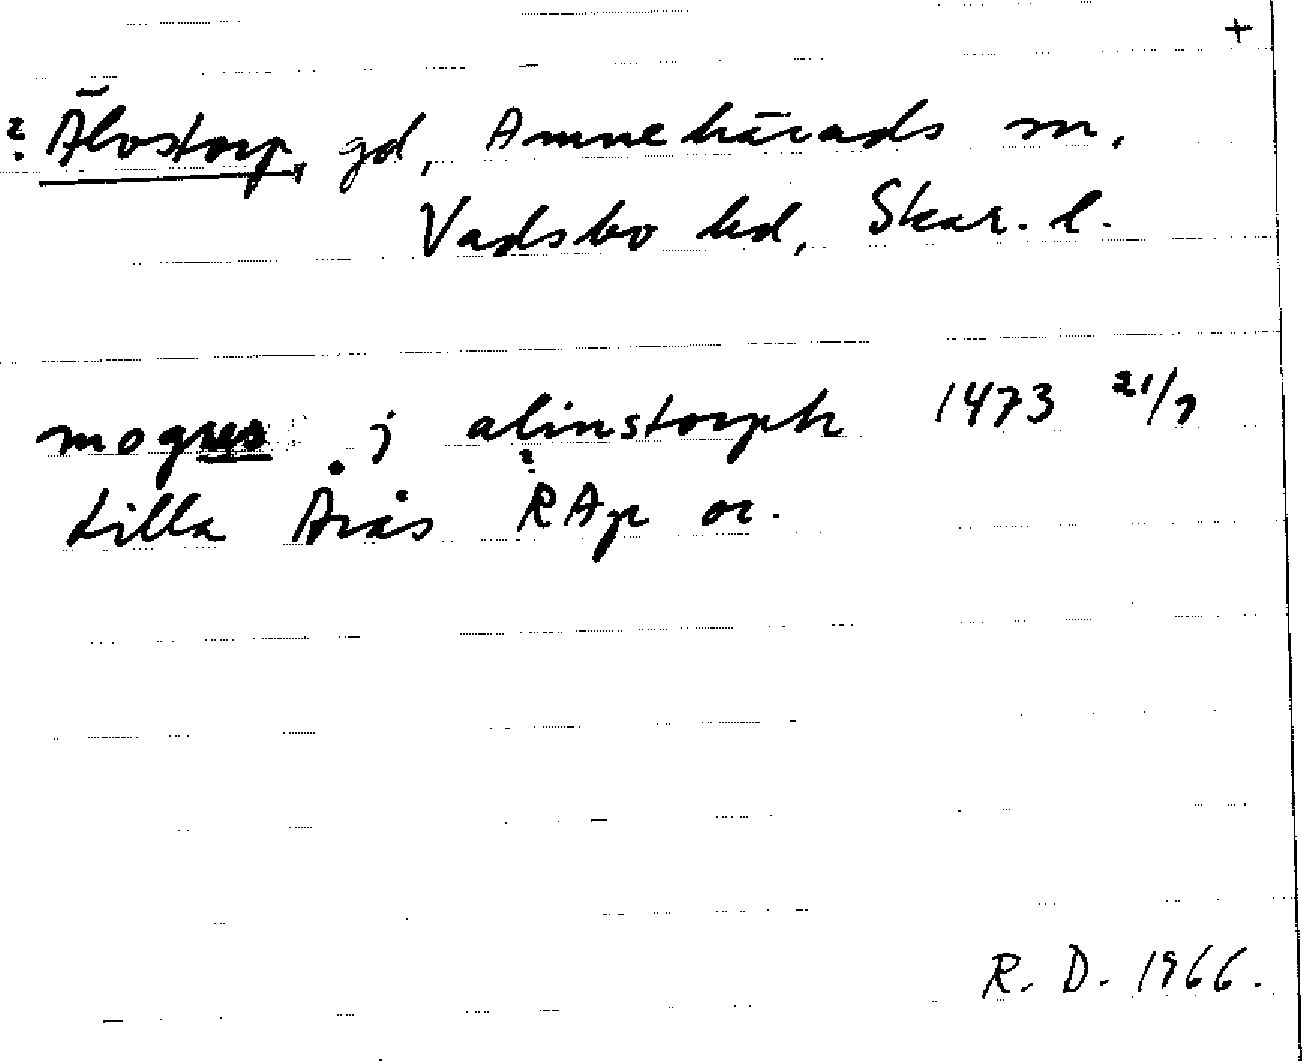 +
? Älvstorp, gd, Amnehärads sn,
Vadsbo hd, Skar. l.
mogens j alinstorph 1473 21/7
?
Lilla Årås RAp or.
R. D. 1966.